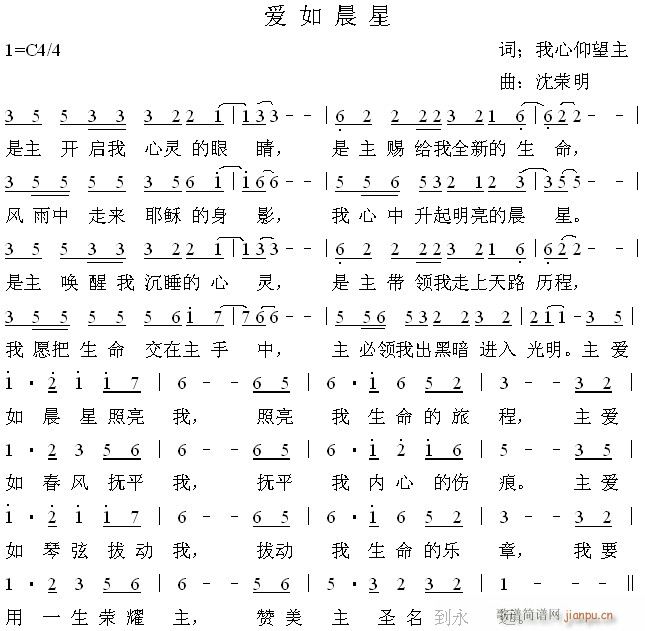 爱如晨星
1=C4/4
词；我心仰望主
曲：沈荣明
3 5 5 3 3 3 2 2 1 | 1 3 3 - - | 6 2 2 2 2 3 2 1 6 | 6 2 2 - - |
是主 开启我 心灵的眼 睛， 是主赐给我全新的生 命，
3 5 5 5 5 3 5 6 1 | 1 6 6 - - | 5 5 6 5 3 2 1 2 3 | 3 5 5 - - |
风雨中 走来 耶稣的身 影， 我心中升起明亮的晨 星。
3 5 5 3 3 3 2 2 1 | 1 3 3 - - | 6 2 2 2 2 3 2 1 6 | 6 2 - - |
是主 唤醒我沉睡的心 灵， 是主带领我走上天路历程，
3 5 5 5 5 5 6 1 7 | 7 6 6 - - | 5 5 6 5 3 2 2 3 2 | 2 1 1 - 3 5 |
我愿把生命 交在主手 中， 主必领我出黑暗进入光明。主爱
1 · 2 1 1 7 | 6 - - 6 5 | 6 · 1 6 5 2 | 3 - 3 2 |
如晨星照亮 我， 照亮 我生命的旅 程， 主爱
1 · 2 3 5 6 | 6 - - 5 6 | 6 · 1 2 1 6 | 5 - 3 5 |
如春风抚平 我， 抚平 我内心的伤 痕。 主爱
1 · 2 1 1 7 | 6 - - 6 5 | 6 · 1 6 5 2 | 3 - 3 2 |
如琴弦拨动我， 拨动 我生命的乐 章，我要
1 · 2 3 5 6 | 6 - - 5 6 | 5 · 3 2 3 2 | 1 - - - ‖
用一生荣耀 主， 赞美 主圣名到永 远。
歌谱简谱网
jianpu.cn